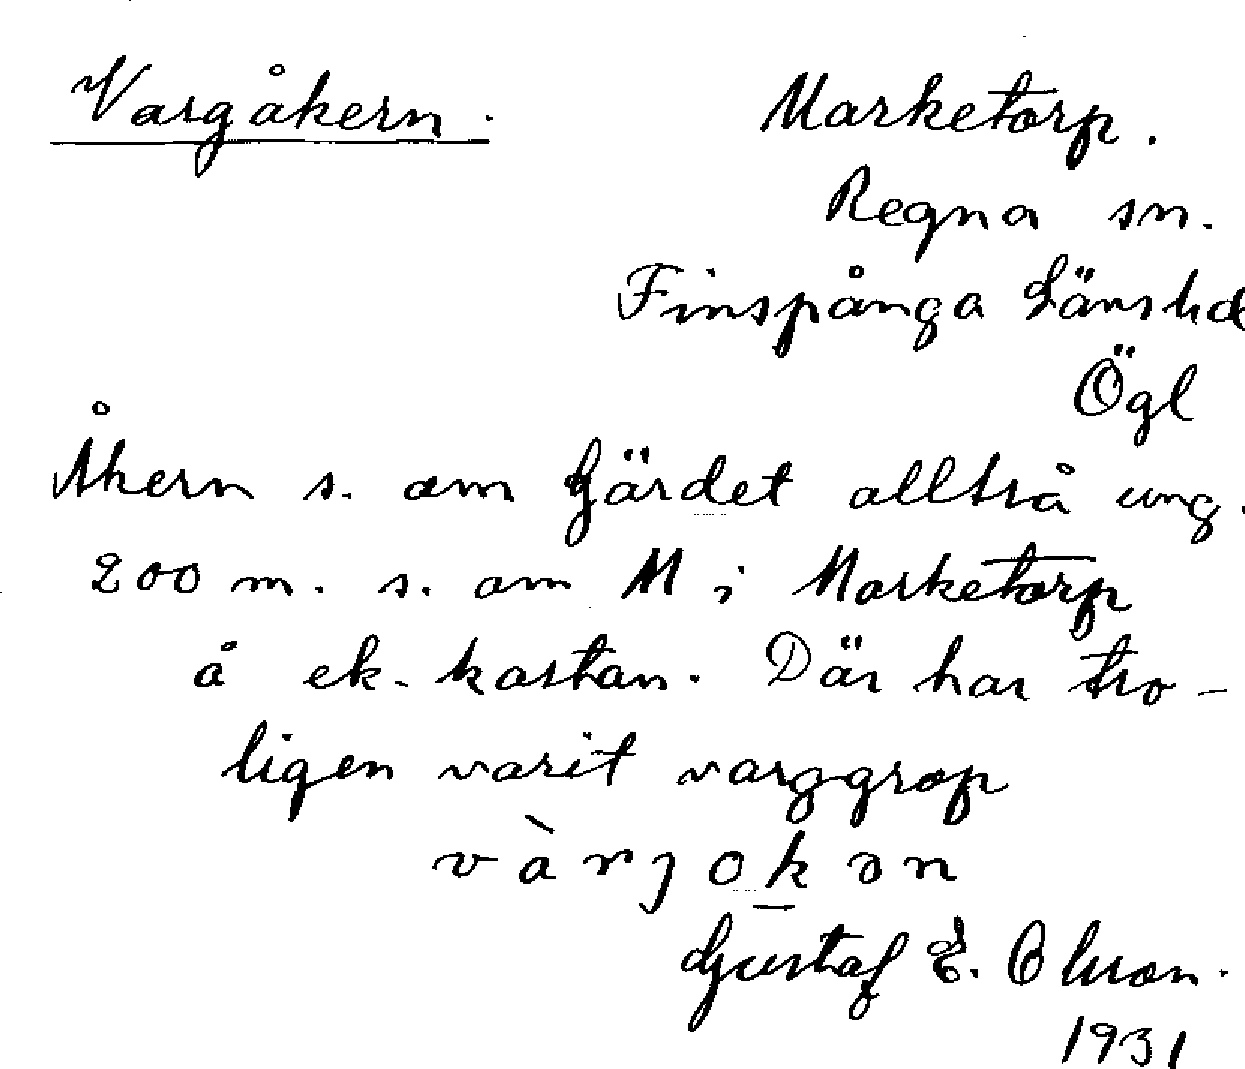 Vargåkern. Marketorp.
Regna sn.
Finspånga Länshd
Ögl
Åkern s. om Gärdet alltså ung.
200 m. s. om M i Marketorp
å ek. kartan. Där har tro-
ligen varit varggrop
vàrjokən
Gustaf E. Olsson.
1931